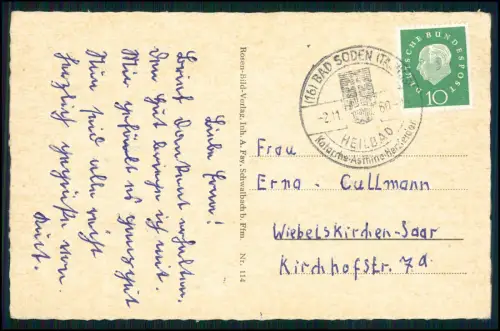 Liebe Erna!
Brief dankend erhalten.
Den Hut bringe ich mit.
Mir gefällt es ganz gut
Nun seid alle recht
herzlich gegrüßt von
Rosen-Bild-Verlag, Inh. A. Fay, Schwalbach b. Ffm. Nr. 114
(16) BAD SODEN (TAUNUS)
-2.11.60
HEILBAD
Katarrhe-Asthma-Herzleiden
DEUTSCHE BUNDESPOST
10
Frau
Erna Cullmann
Wiebelskirchen-Saar
Kirchhofstr. 7a.